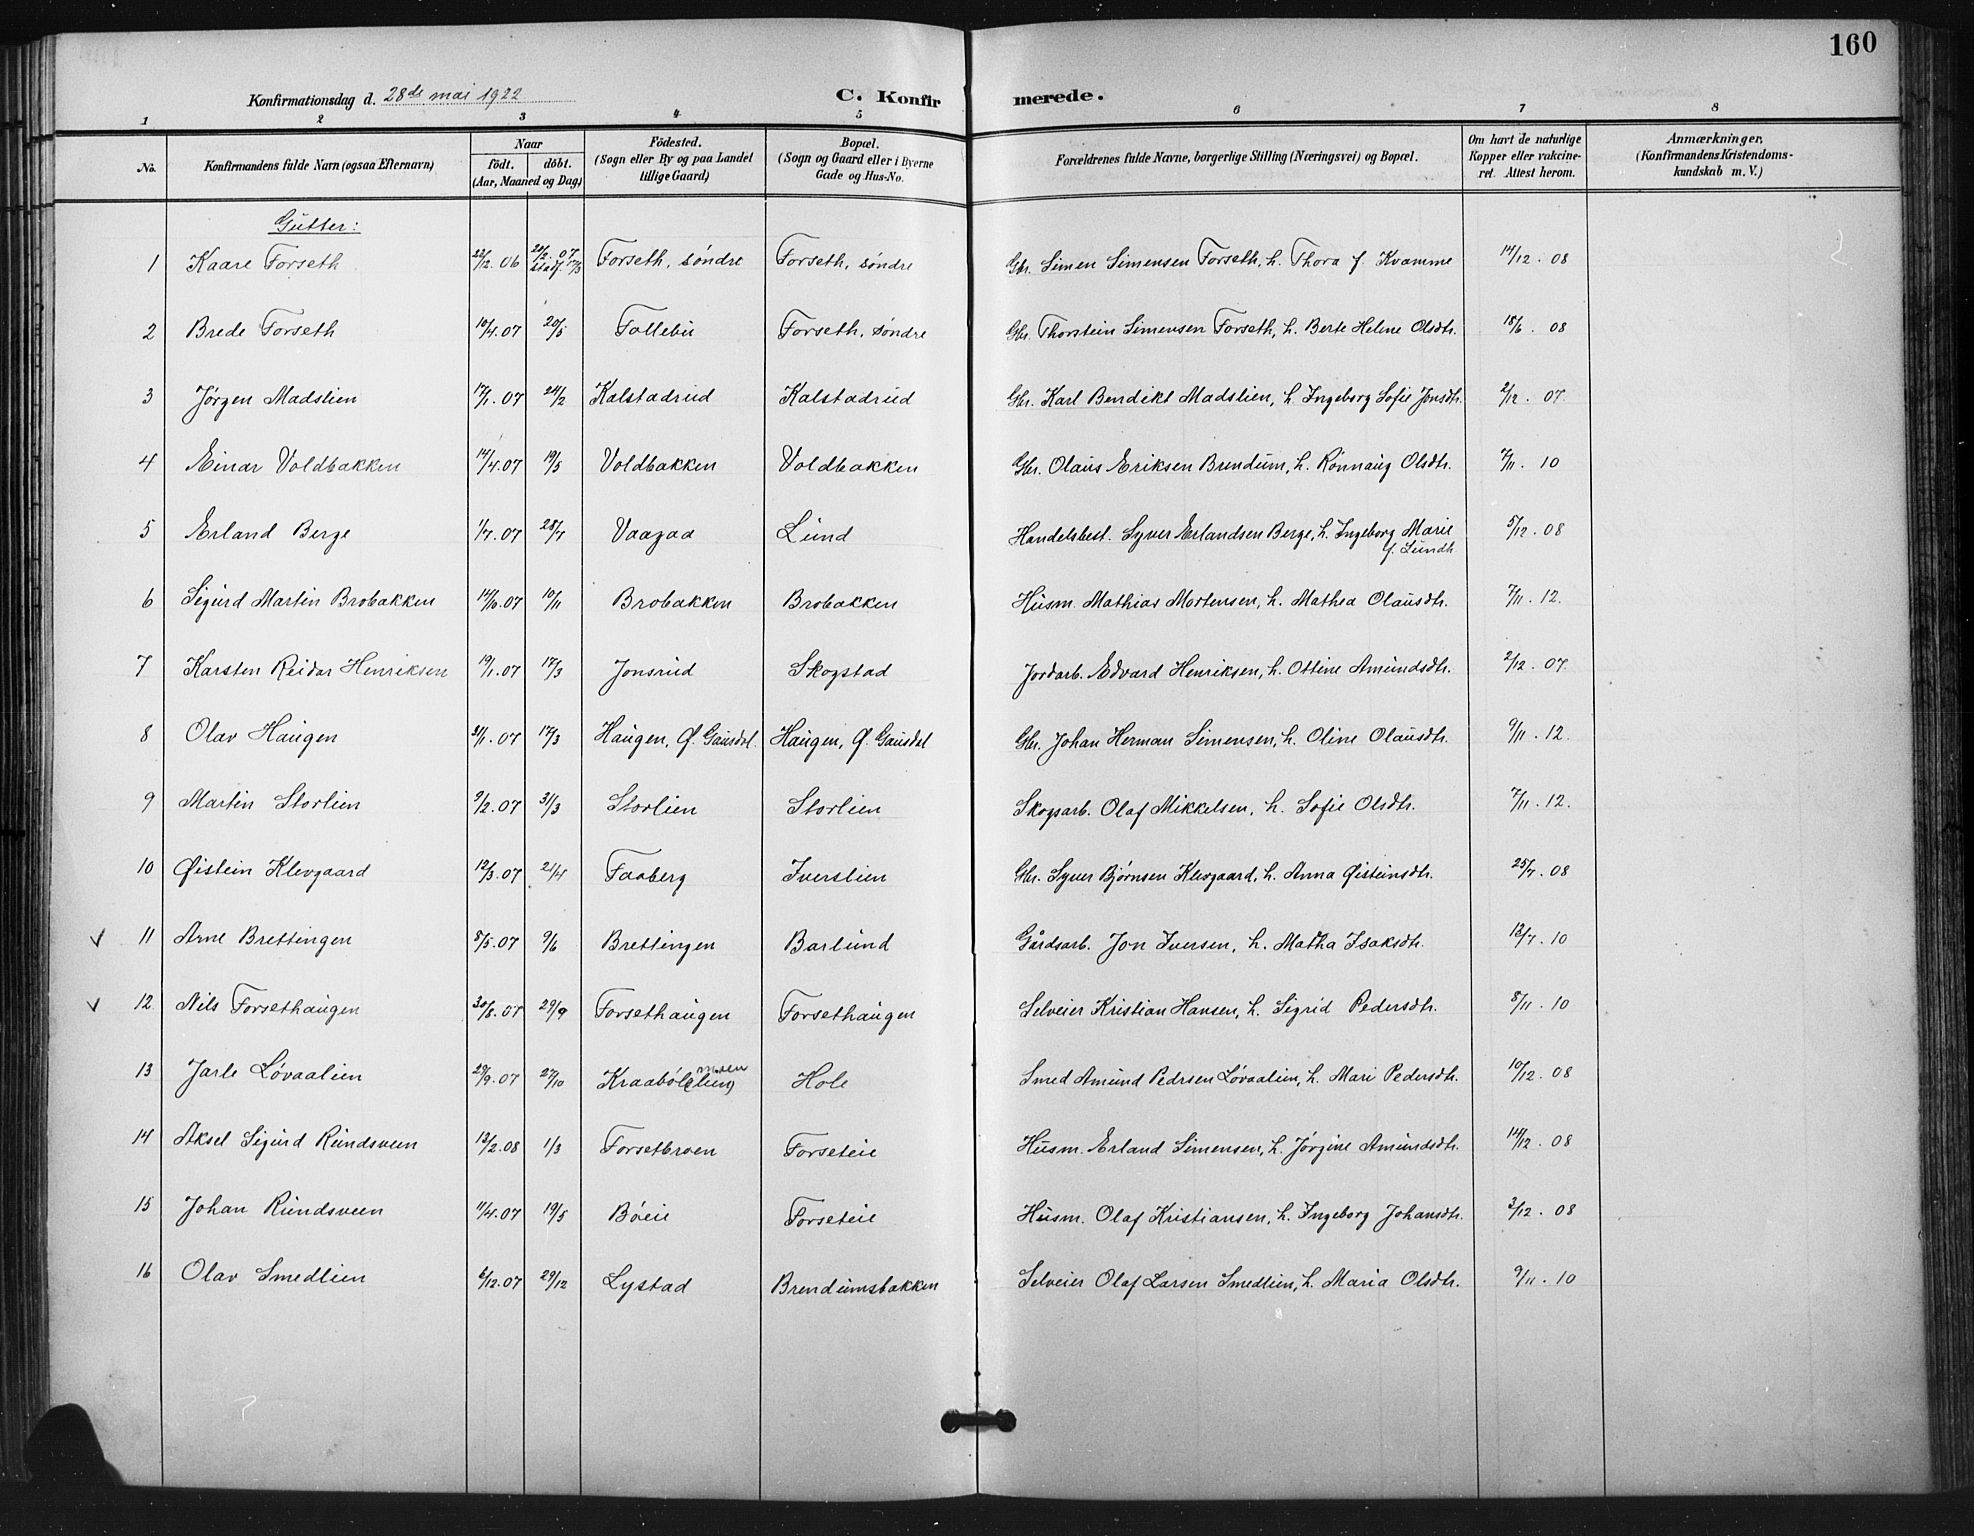 160
Konfirmationsdag d. 28de mai 1922
C. Konfirmerede.
1 2 3 4 5 6 7 8
No. Konfirmandens fulde Navn (ogsaa Efternavn) Naar født. døbt. (Aar, Maaned og Dag) Födested. (Sogn eller By og paa Landet tillige Gaard) Bopæl. (Sogn og Gaard eller i Byerne Gade og Hus-No. Forældrenes fulde Navne, borgerlige Stilling (Næringsvei) og Bopæl. Om havt de naturlige Kopper eller vakcineret. Attest herom. Anmærkninger. (Konfirmandens Kristendomskundskab m. V.)
Gutter:
1 Kaare Forseth 22/12.06 20/2.07 stadf. 17/3 Forseth, søndre Forseth, søndre Gbr. Simen Simensen Forseth, h. Thora f. Kvamme 14/12.08
2 Brede Forseth 10/4.07 20/5 Follebu Forseth, søndre Gbr. Thorstein Simensen Forseth, h. Berte Helene Olsdtr. 18/6.08
3 Jørgen Madslien 17/1.07 24/2 Kalstadrud Kalstadrud Gbr. Karl Bendikt Madslien, h. Ingeborg Sofie Jonsdtr. 2/12.07
4 Einar Voldbakken 14/4.07 19/5 Voldbakken Voldbakken Gbr. Olaus Eriksen Brendum, h. Rønnaug Olsdtr. 7/11.10
5 Erland Berge 1/7.07 28/7 Vaagaa Lund Handelsbest. Syver Erlandsen Berge, h. Ingeborg Marie f. Lundh 5/12.08
6 Sigurd Martin Brobakken 14/10.07 10/11 Brobakken Brobakken Husm. Mathias Mortensen, h. Mathea Olausdtr. 7/11.12.
7 Karsten Reidar Henriksen 19/1.07 17/3 Jonsrud Skogstad Jordarb. Edvard Henriksen, h. Ottine Amundsdtr. 2/12.07.
8 Olav Haugen 31/1.07 17/3 Haugen, Ø. Gausdal. Haugen, Ø. Gausdal Gbr. Johan Herman Simensen, h. Oline Olausdtr. 9/11.12.
9 Martin Storlien 9/2.07 31/3 Storlien Storlien Skogsarb. Olaf Mikkelsen, h. Sofie Olsdtr. 7/11.12.
10 Øistein Klevgaard 12/3.07 21/4 Faaberg Iverslien Gbr. Syver Bjørnsen Klevgaard, h. Anna Øisteinsdtr. 25/7.08
V 11 Arne Brettingen 8/5.07 9/6 Brettingen Barlund Gårdsarb. Jon Iversen, h. Matha Isaksdtr. 13/7.10
V 12 Nils Forsethaugen 30/8.07 29/9 Forsethaugen Forsethaugen Selveier Kristian Hansen, h. Sigrid Pedersdtr. 8/11.10
13 Jarle Løvaalien 29/9.07 27/10 Kraabøl(lien) moen Hole Smed Amund Pedrsen Løvaalien, h. Mari Pedersdtr. 10/12.08
14 Aksel Sigurd Rundsveen 13/2.08 1/3 Forsetbroen Forseteie Husm. Erland Simensen, h. Jørgine Amundsdtr. 14/12.08
15 Johan Rundsveen 11/4.07 19/5 Bøeie Forseteie Husm. Olaf Kristiansen, h. Ingeborg Johansdtr. 3/12.08
16 Olav Smedlien 6/12.07 29/12 Lystad Brendumsbakken Selveier Olaf Larsen Smedlien, h. Maria Olsdtr. 9/11.10